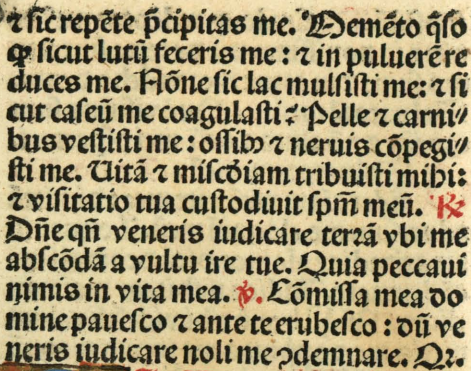 ⁊ sic repẽte p̃cipitas me. Memẽto q̃so
qꝫ sicut lutũ feceris me : ⁊ in puluerẽ re
duces me. Nõne sic lac mulsisti me: ⁊ si
cut caseũ me coagulasti : Pelle ⁊ carni⸗
bus vestisti me : ossibꝰ ⁊ neruis cõpegi⸗
sti me. Uitã ⁊ mīscd̃iam tribuisti mihi:
⁊ visitatio tua custodiuit spm̃ meũ. ℟
Dñe qñ veneris iudicare terrã vbi me
abscõdã a vultu ire tue. Quia peccaui
nimis in vita mea. ℣. Cõmissa mea do
mine pauesco ⁊ ante te erubesco : dũ ve
neris iudicare noli me ↄdemnare. Qꝛ.